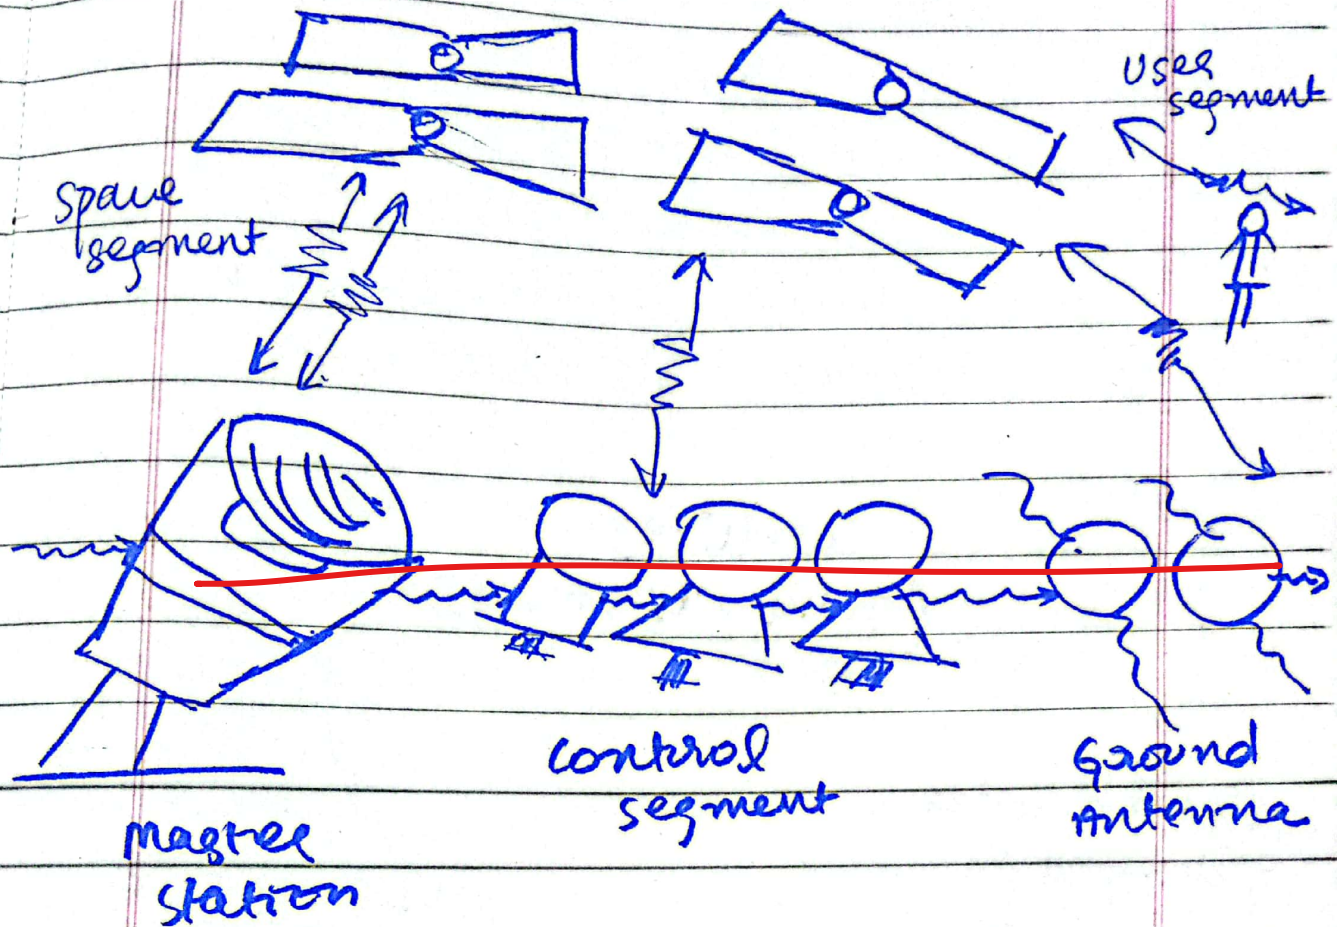 User
segment
Space
segment
Control
segment
Ground
Antenna
Master
station